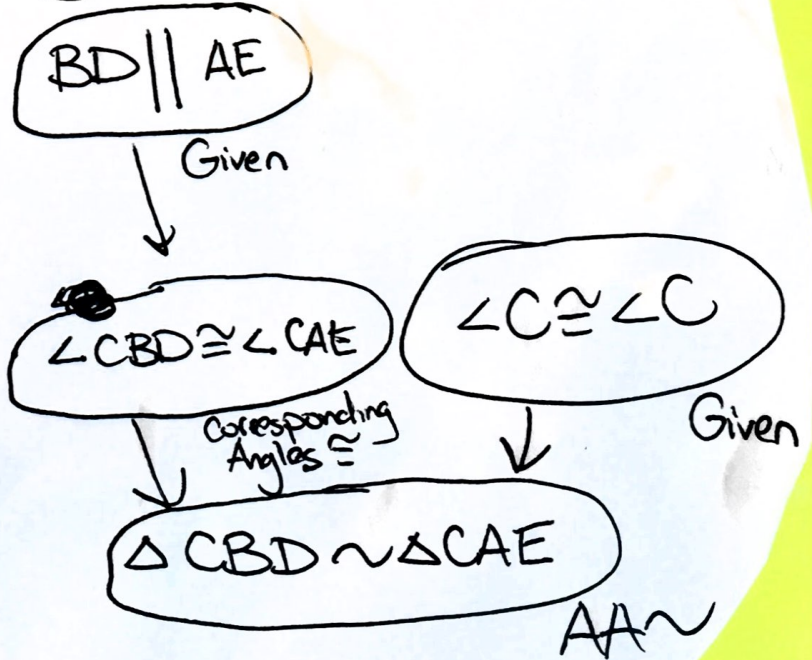 BD || AE
Given
∠CBD ≅ ∠CAE
∠C ≅ ∠C
Corresponding
Angles ≅
Given
△CBD ~ △CAE
AA~